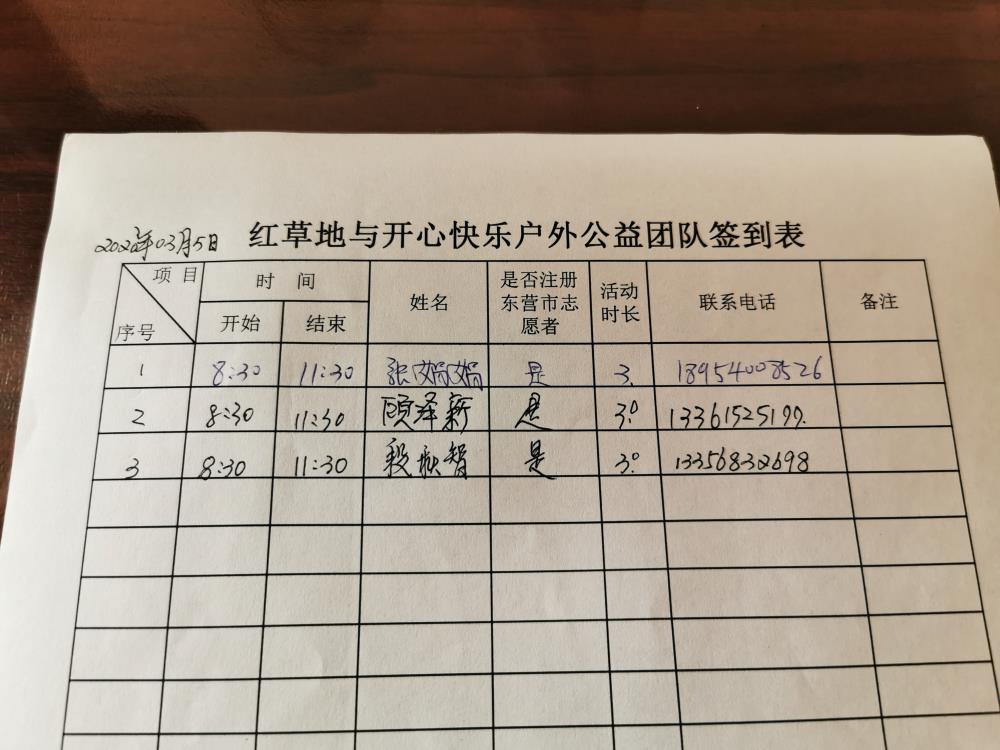 红草地与开心快乐户外公益团队签到表
2022年03月5日
项目 时间 姓名 是否注册东营市志愿者 活动时长 联系电话 备注
序号 开始 结束
1 8:30 11:30 张娟娟 是 3. 18954008526
2 8:30 11:30 顾泽新 是 3° 13361525199.
3 8:30 11:30 段振智 是 3° 13356832698